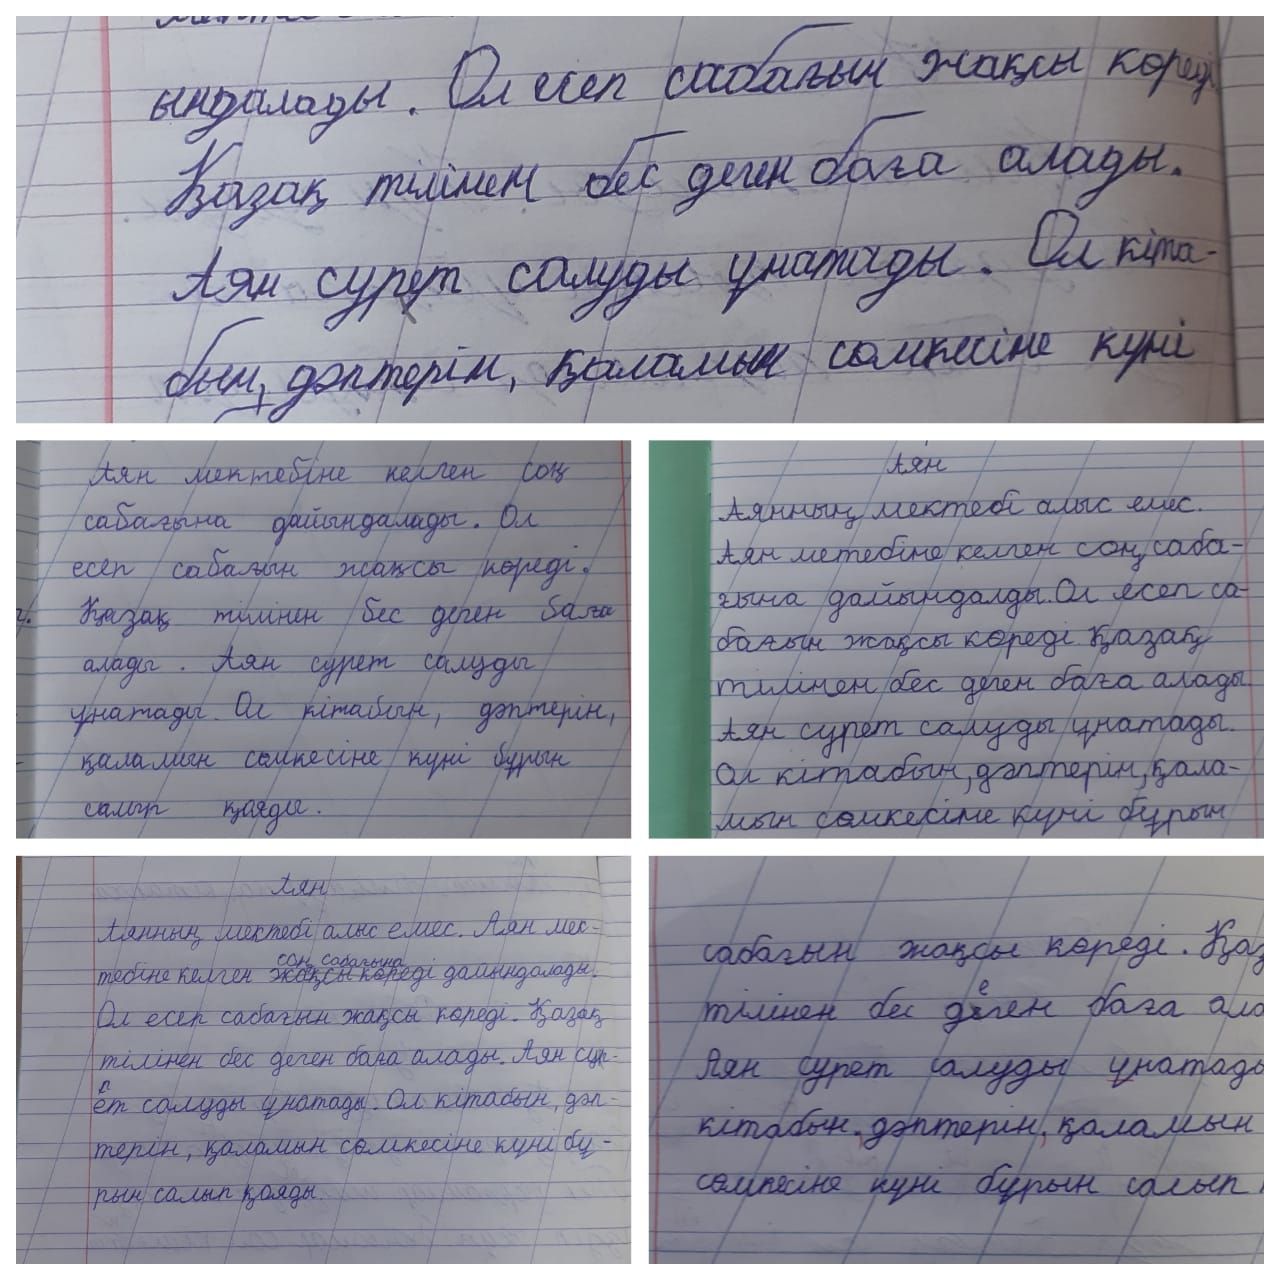 ындалады. Ол есеп сабағын жақсы көреді
Қазақ тілінен бес деген баға алады.
Аян сурет салуды ұнатады. Ол кіта-
бын, дәптерін, қаламын сөмкесіне күні
Аян мектебіне келген соң
сабағына дайындалады. Ол
есеп сабағын жақсы көреді.
Қазақ тілінен бес деген баға
алады. Аян сурет салуды
ұнатады. Ол кітабын, дәптерін,
қаламын сөмкесіне күні бұрын
салып қояды.
Аян
Аянның мектебі алыс емес.
Аян метебіне келген соң саба-
ғына дайындалды. Ол есеп са-
бағын жақсы көреді Қазақ
тілінен бес деген баға алады
Аян сурет салуды ұнатады.
Ол кітабын, дәптерін, қала-
мын сөмкесіне күні бұрын
Аян
Аянның мектебі алыс емес. Аян мек-
соң сабағына
тебіне келген жақсы көреді дайындалады.
Ол есеп сабағын жақсы көреді. Қазақ
тілінен бес деген баға алады. Аян сур-
ет салуды ұнатады. Ол кітабын, дәп-
терін, қаламын сөмкесіне күні бұ-
рын салып қояды
сабағын жақсы көреді. Қаз
тілінен бес деген баға ала
Аян сурет салуды ұнатады
кітабын, дәптерін, қаламын
сөмкесіне күні бұрын салып